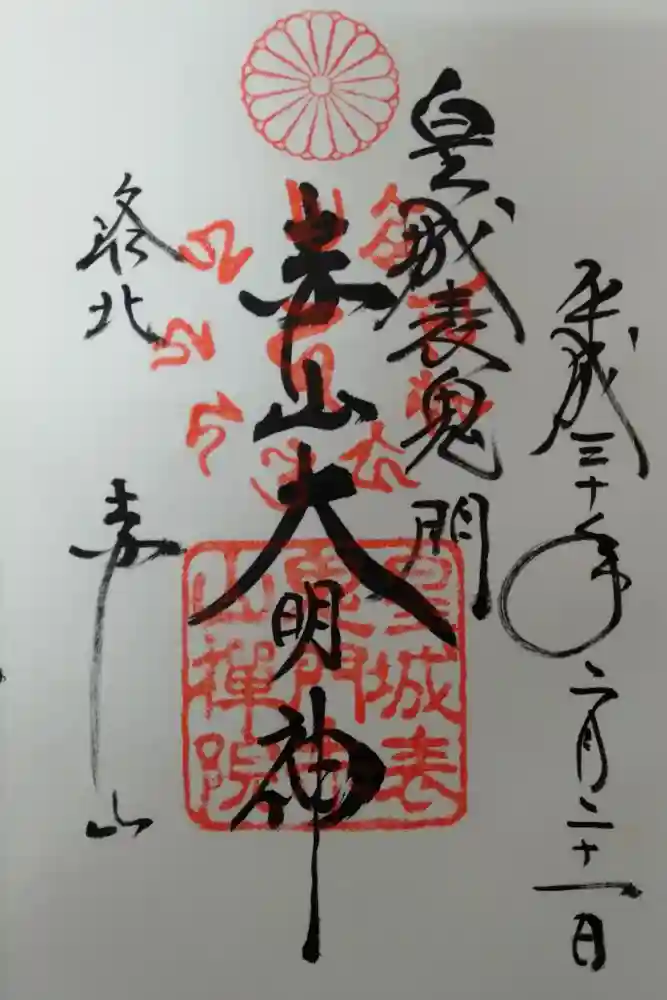 平成三十年二月二十一日
皇城表鬼門
赤山大明神
洛北
赤山
皇城表
鬼門赤
山禪院